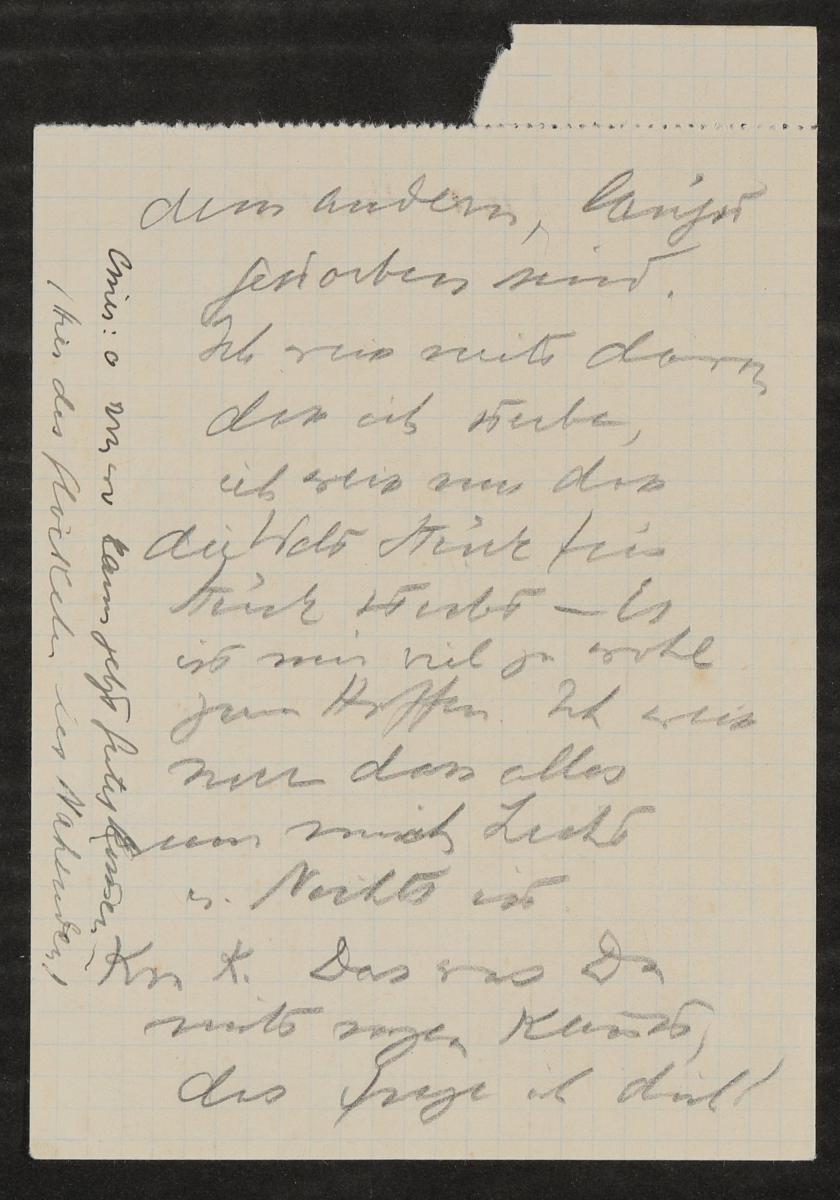 dem andern, längst
gestorben sind.
Ich weiss nichts davon
dass ich sterbe,
ich weiss nur dass
die Welt Stück für
Stück stirbt — Es
ist mir viel zu wohl
zum Hoffen. Ich weiss
nur dass alles
um mich Licht
u. Nichts ist
K. Das was Du
nicht sagen kannst,
das frage ich dich!
o wer kann jetzt gutes
(Hier das Glöckchen des Nahenden!)